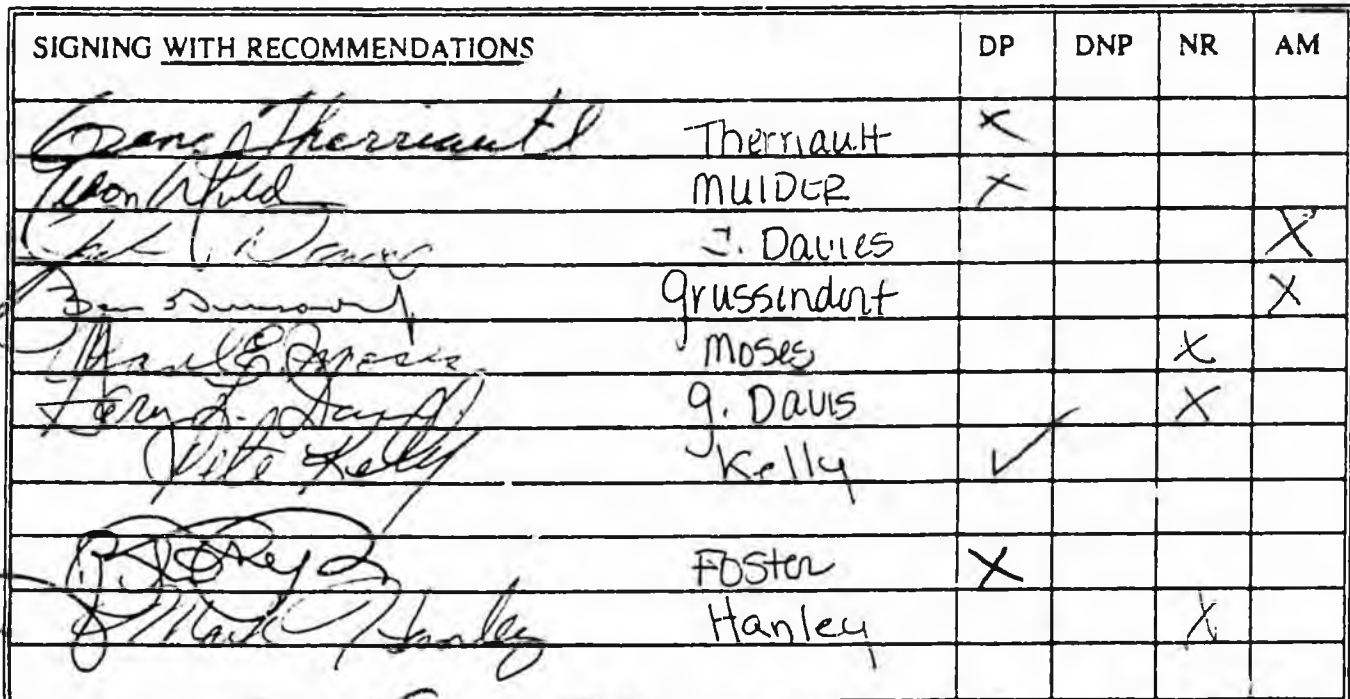 SIGNING WITH RECOMMENDATIONS DP DNP NR AM
Gene Therriault Therriault X
MUIDER X
J. Davies X
Grussindorf X
Moses X
G. Davis X
Pete Kelly Kelly ✓
Foster X
Mark Hanley Hanley X